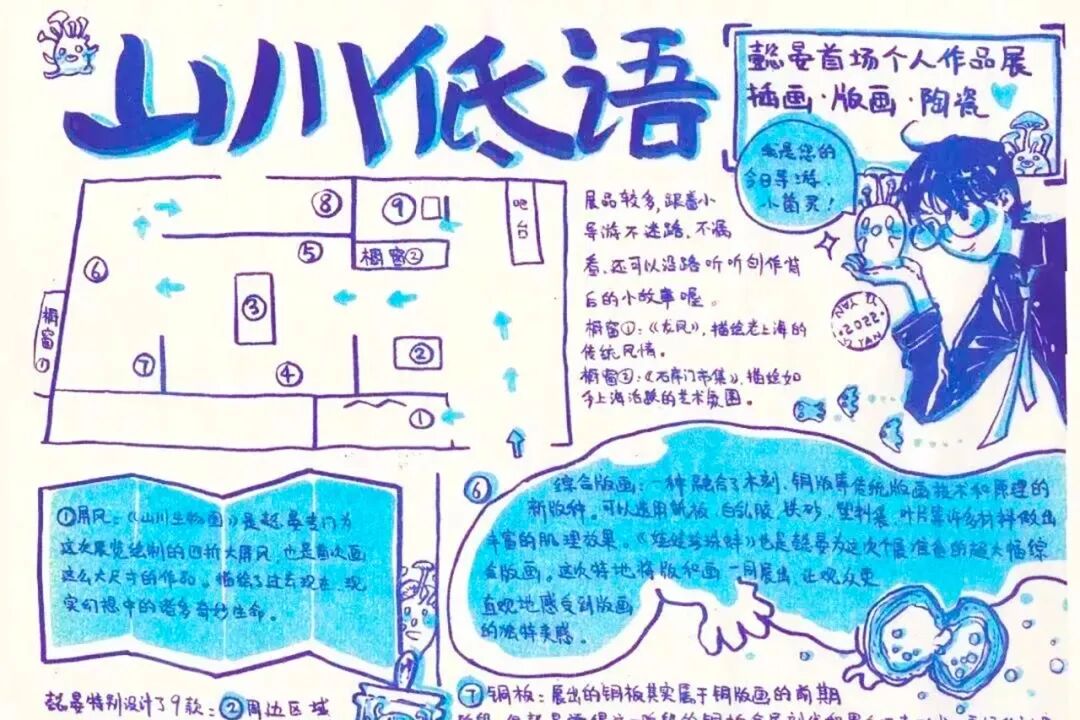 山川低语
懿晏首场个人作品展
插画·版画·陶瓷
我是您的
今日导游,
小菌灵!
展品较多,跟着小
导游不迷路,不漏
看,还可以沿路听听创作背
后的小故事喔。
橱窗①:《龙凤》,描绘老上海的
传统风情。
橱窗②:《石库门市集》,描绘如
今上海活跃的艺术氛围。
2022
YI YAN
⑧
⑨
吧台
橱窗②
⑤
⑥
③
橱窗①
⑦
④
②
①
①屏风:《山川生物图》是懿晏专门为
这次展览绘制的四折大屏风,也是首次画
这么大尺寸的作品。描绘了过去现在、现
实幻想中的诸多奇妙生命。
⑥
综合版画:一种融合了木刻、铜版等传统版画技术和原理的
新版种。可以运用纸板、白乳胶、铁砂、塑料袋、叶片等许多材料做出
丰富的肌理效果。《娃娃珍珠蚌》也是懿晏为这次个展准备的超大幅综
合版画。这次特地将版和画一同展出,让观众更
直观地感受到版画
的独特灵感。
懿晏特别设计了9款:②周边区域
⑦铜板:展出的铜板其实属于铜版画的前期